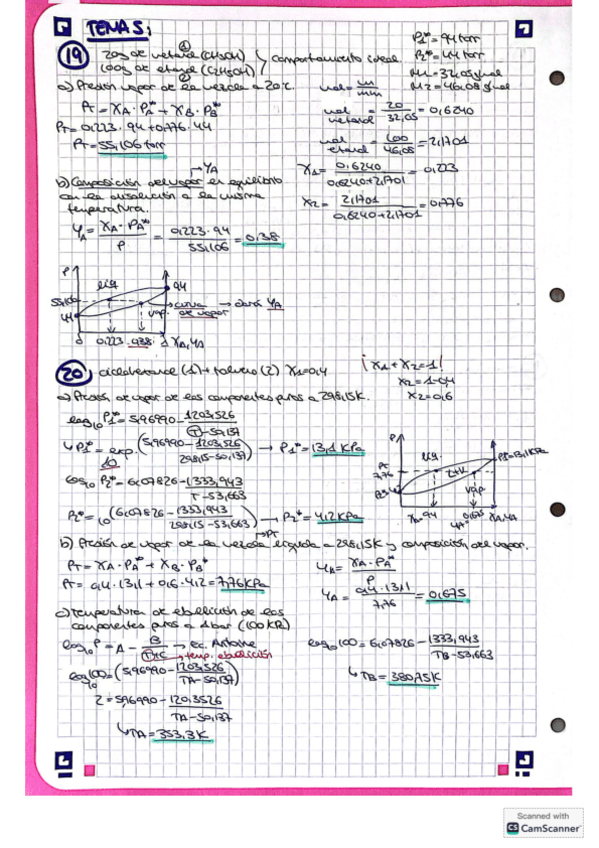 TEMA 5:
19 20g de metanol (CH3OH) (1)
100g de etanol (C2H5OH) (2)
comportamiento ideal
P1* = 94 torr
P2* = 44 torr
M1 = 32,05 g/mol
M2 = 46,08 g/mol
a) Presión vapor de la mezcla a 20ºC.
PT = XA · PA* + XB · PB*
PT = 0,223 · 94 + 0,776 · 44
PT = 55,106 torr
mol = m/mm
mol metanol = 20/32,05 = 0,6240
mol etanol = 100/46,08 = 2,1701
X1 = 0,6240/(0,6240+2,1701) = 0,223
X2 = 2,1701/(0,6240+2,1701) = 0,776
→ YA
b) Composición del vapor en equilibrio
con la disolución a la misma
temperatura.
YA = XA · PA*/P = 0,223 · 94/55,106 = 0,38
P
94
líq
55,106
44
vap.
curva de vapor → dará YA
0 0,223 0,38 1 XA, YA
20 ciclohexano (1) + tolueno (2) X1=0,4
¡X1 + X2 = 1!
X2 = 1-0,4
X2 = 0,6
a) Presión de vapor de los componentes puros a 298,15K.
log10 P1* = 5,96990 - 1203,526/(T-50,137)
↳ P1* = exp. 10 (5,96990 - 1203,526/(298,15-50,137)) → P1* = 13,1 KPa
log10 P2* = 6,07826 - 1333,943/(T-53,663)
P2* = 10 (6,07826 - 1333,943/(298,15-53,663)) → P2* = 4,2 KPa
P
líq.
P1*=13,1 KPa
PT
7,76
L+V
vap.
XA=0,4 YA=0,675 XA, YA
→ PT
b) Presión de vapor de la mezcla líquida a 298,15K y composición del vapor.
PT = XA · PA* + XB · PB*
PT = 0,4 · 13,1 + 0,6 · 4,2 = 7,76 KPa
YA = XA · PA*/P
YA = 0,4 · 13,1/7,76 = 0,675
c) Temperatura de ebullición de los
componentes puros a 1 bar (100 KPa)
log10 P = A - B/(T+C) → ec. Antoine
→ temp. ebullición
log10 100 = (5,96990 - 1203,526/(TA-50,137))
2 = 5,96990 - 120,3526/(TA-50,137)
↳ TA = 353,3 K
log10 100 = 6,07826 - 1333,943/(TB-53,663)
↳ TB = 380,75 K
Scanned with
CS CamScanner